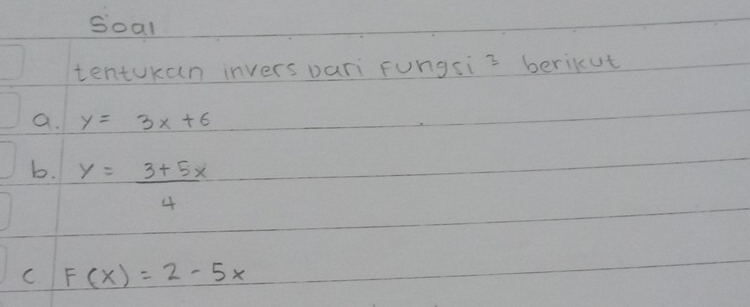 Soal
tentukan invers Dari Fungsi² berikut
a. y = 3x + 6
b. y = 3 + 5x
4
c F(x) = 2 - 5x